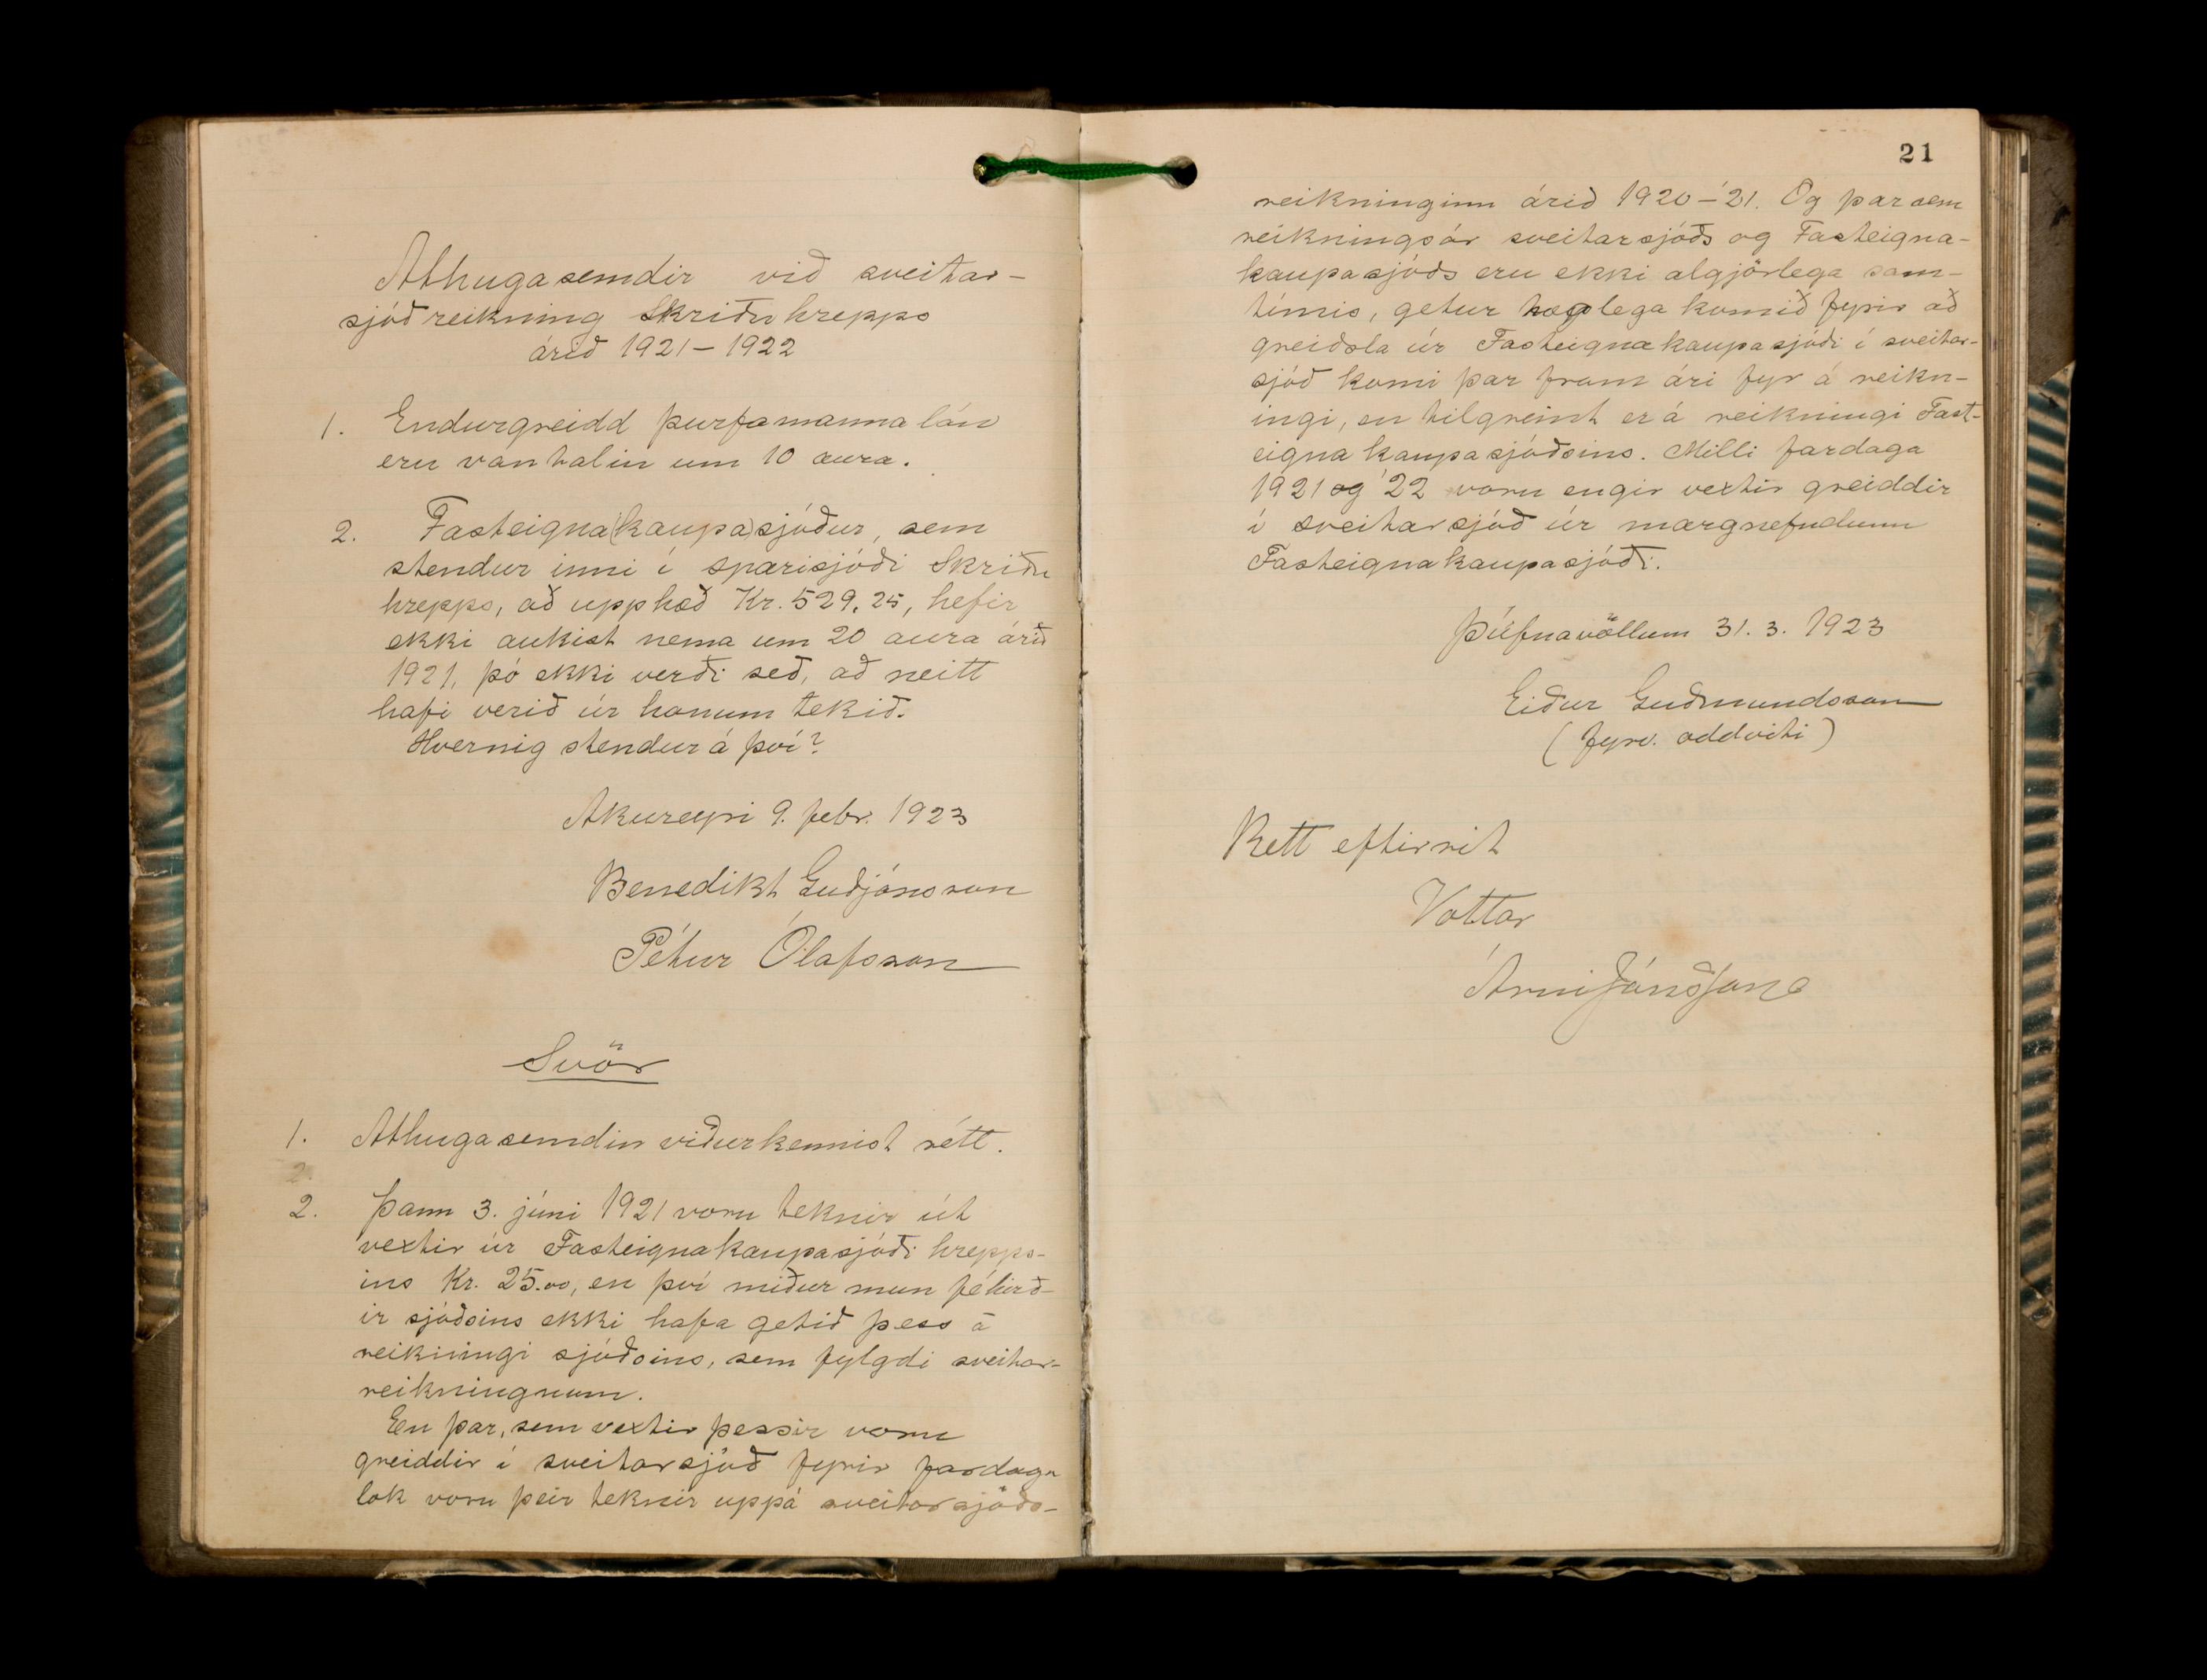 Athugasemdir við sveitar-
sjóðreikning Skriðuhrepps
árið 1921-1922
1. Endurgreidd þurfamannalán
eru vantalin um 10 aura.
2. Fasteigna(kaupa)sjóður, sem
stendur inni í sparisjóði Skriðu
hrepps, að upphæð Kr. 529.25, hefir
ekki aukist nema um 20 aura árið
1921, þó ekki verði séð, að neitt
hafi verið úr honum tekið.
Hvernig stendur á því?
Akureyri 9. febr. 1923
Benedikt Guðjónsson
Pétur Ólafsson
Svör
1. Athugasemdin viðurkennist rétt.
2.
2. Þann 3. júni 1921 voru teknir út
vextir úr Fasteignakaupasjóði hrepps-
ins Kr. 25.00, en því miður mun féhirð-
ir sjóðsins ekki hafa getið þess á
reikningi sjóðsins, sem fylgdi sveitar-
reikningnum.
En þar, sem vextir þessir voru
greiddir í sveitarsjóð fyrir fardaga
lok voru þeir teknir uppá sveitarsjóðs-
21
reikninginn árið 1920-'21. Og þar sem
reikningsár sveitarsjóðs og Fasteigna-
kaupasjóðs eru ekki algjörlega sam-
tímis, getur hæglega komið fyrir að
greiðsla úr Fasteignakaupasjóði í sveitar-
sjóð komi þar fram ári fyr á reikn-
ingi, en tilgreint er á reikningi Fast-
eignakaupasjóðsins. Milli fardaga
1921 og '22 voru engir vextir greiddir
í sveitarsjóð úr margnefndum
Fasteignakaupasjóði.
Þúfnavöllum 31. 3. 1923
Eiður Guðmundsson
(fyrv. oddviti)
Rétt eftirrit
Vottar
Árni Jónsson